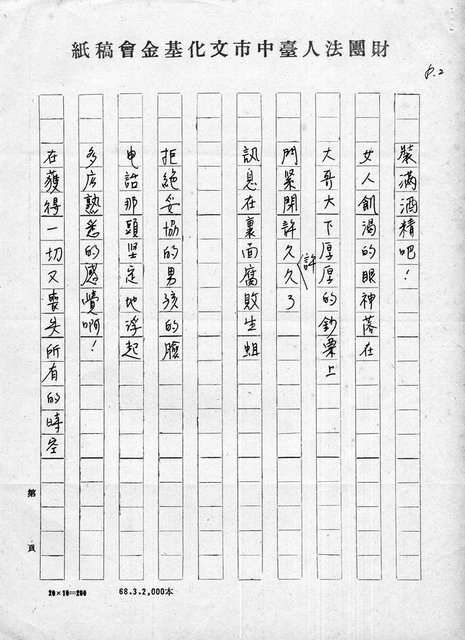 財團法人臺中市文化基金會稿紙
P.2
裝滿酒精吧！
女人飢渴的眼神落在
大哥大下厚厚的鈔票上
門緊閉許久許久了
訊息在裏面腐敗生蛆
拒絕妥協的男孩的臉
电話那頭坚定地浮起
多么熟悉的感覺啊！
在獲得一切又喪失所有的時空
第 頁
20×10=200
68.3.2,000本